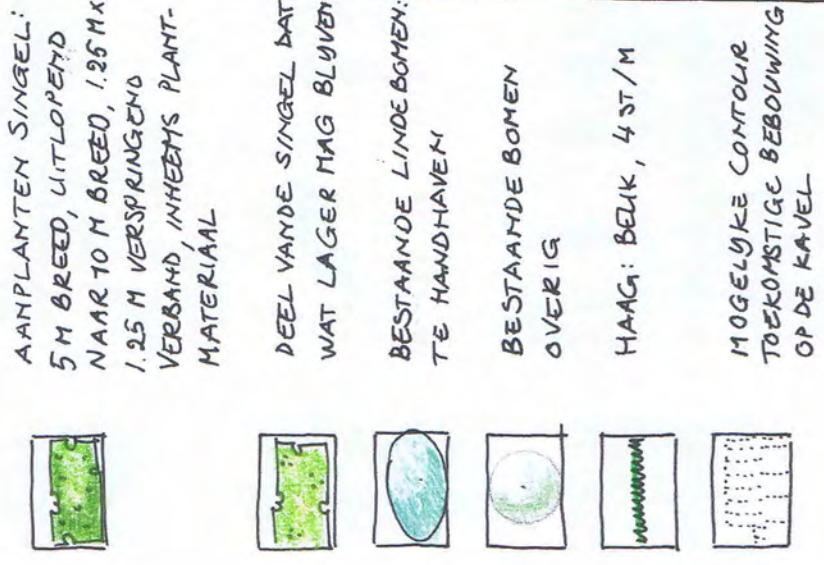 AANPLANTEN SINGEL:
5 M BREED, UITLOPEND
NAAR 10 M BREED, 1.25 M X
1.25 M VERSPRINGEND
VERBAND, INHEEMS PLANT-
MATERIAAL
DEEL VANDE SINGEL DAT
WAT LAGER MAG BLIJVEN
BESTAANDE LINDEBOMEN:
TE HANDHAVEN
BESTAANDE BOMEN
OVERIG
HAAG: BEUK, 4 ST/M
MOGELIJKE CONTOUR
TOEKOMSTIGE BEBOUWING
OP DE KAVEL